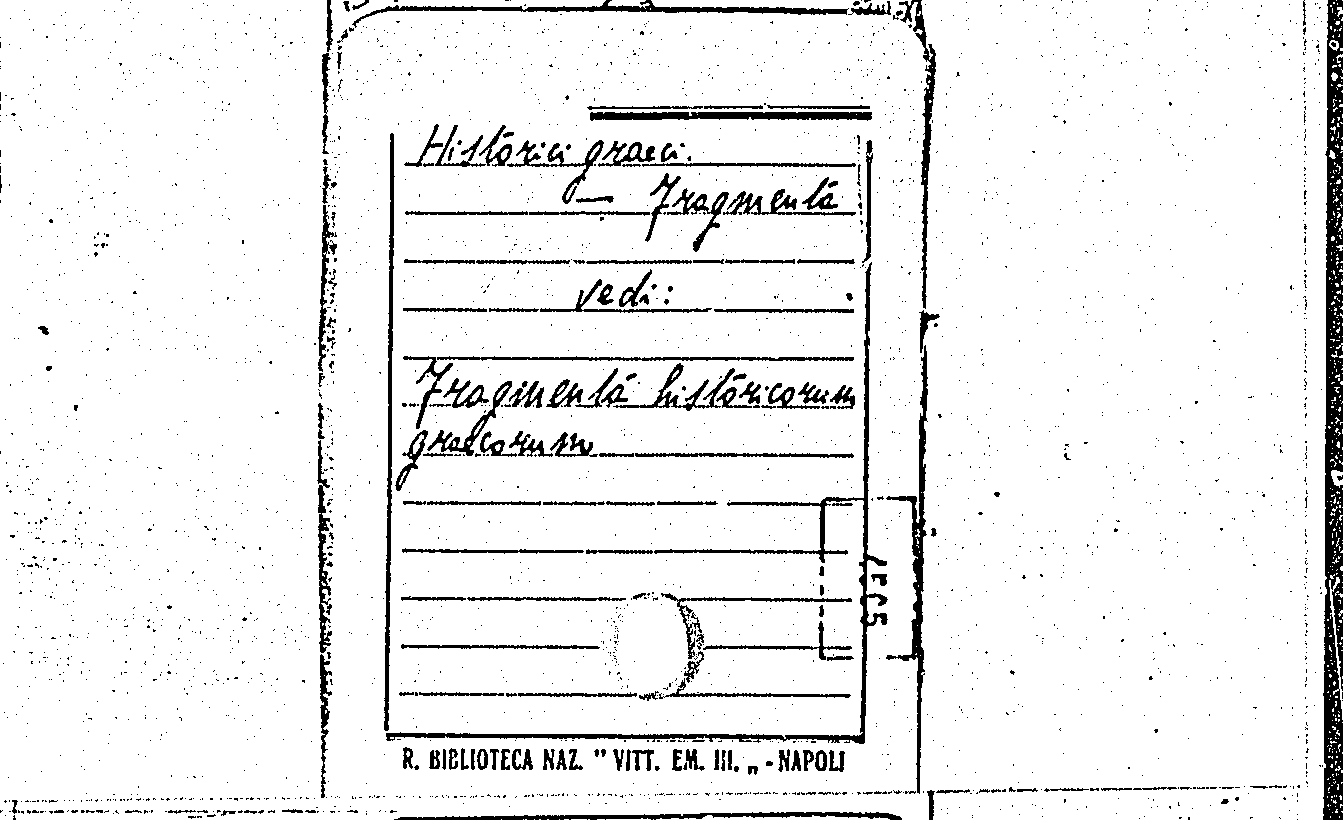 Historici graeci.
— Fragmenta
vedi:
Fragmenta historicorum
graecorum
R. BIBLIOTECA NAZ. " VITT. EM. III. „ - NAPOLI